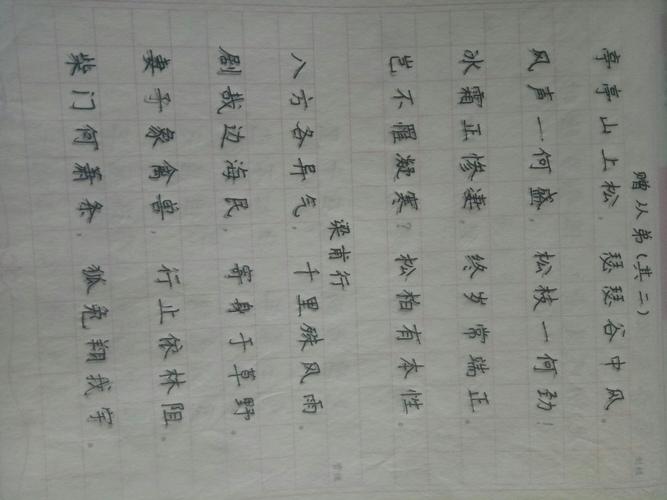 赠从弟(其二)
亭亭山上松,瑟瑟谷中风。
风声一何盛,松枝一何劲!
冰霜正惨凄,终岁常端正。
岂不罹凝寒?松柏有本性。
梁甫行
八方各异气,千里殊风雨。
剧哉边海民,寄身于草野。
妻子象禽兽,行止依林阻。
柴门何萧条,狐兔翔我宇。